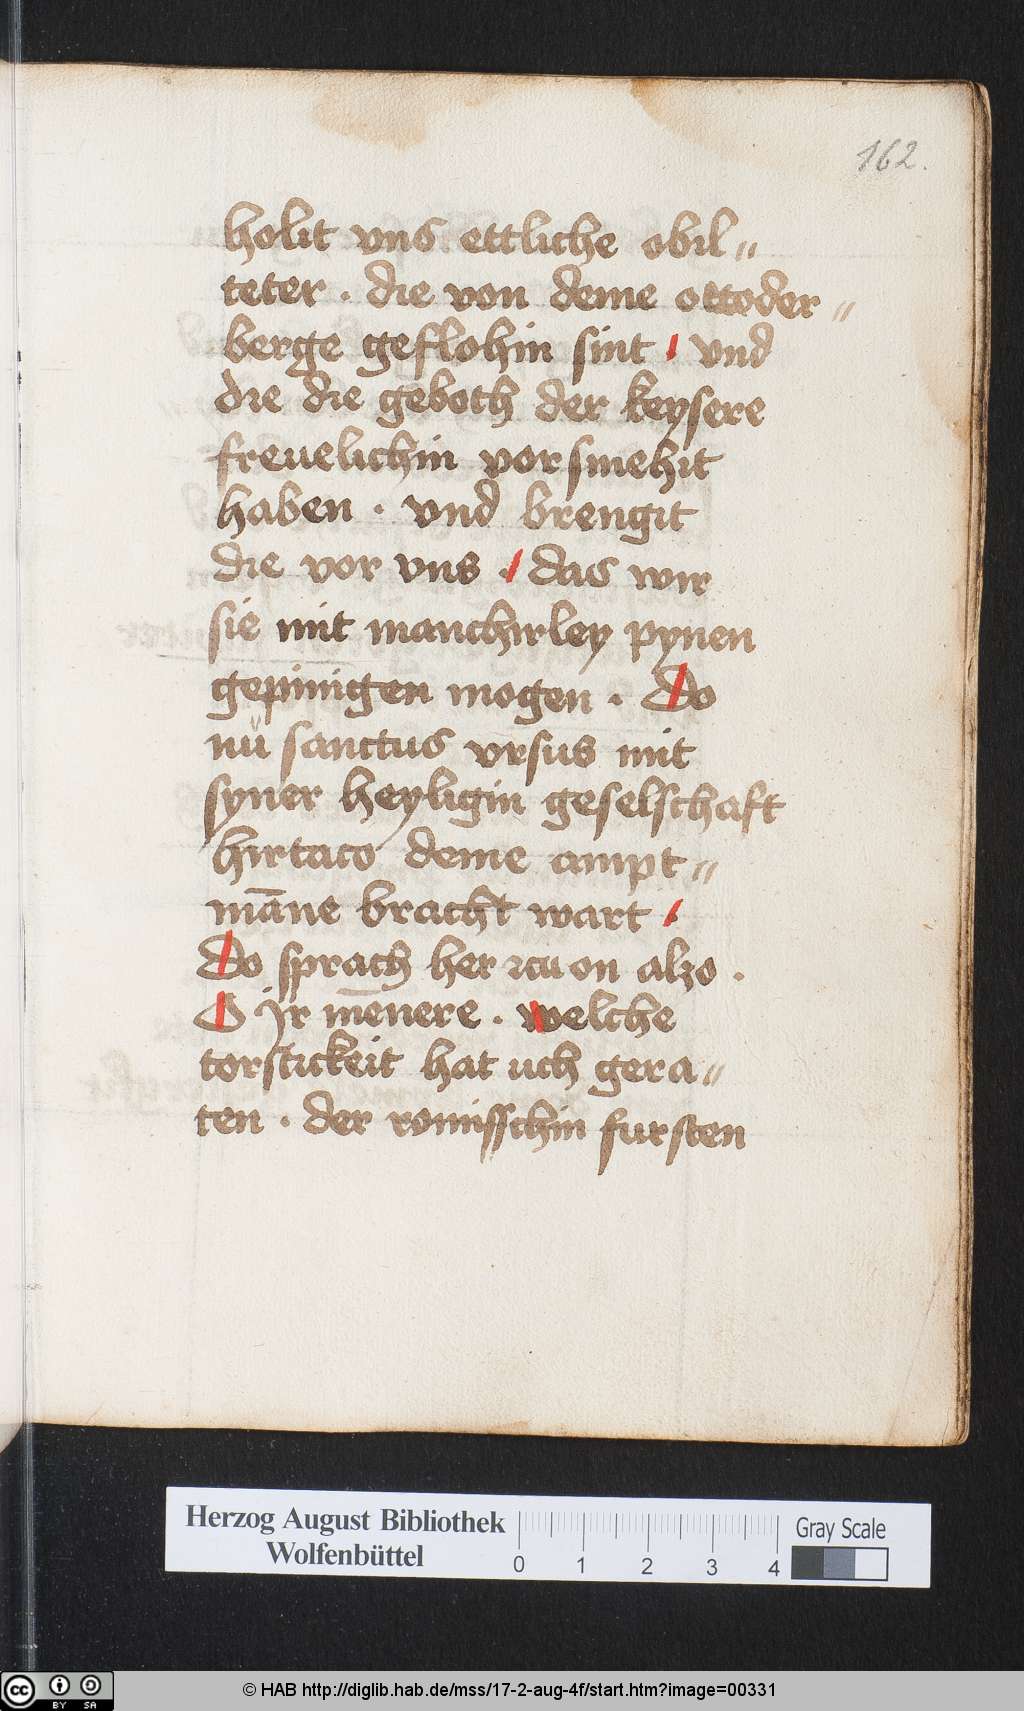 162.
holit vns ettliche obil〃
teter . die von deme ottoder〃
berge geflohin sint . vnd
die die geboth der keysere
freuelichin vorsmehit
haben . vnd brengit
die vor vns . das wir
sie mit manchirley pynen
gepinigen mogen . Do
nü sanctus vrsus mit
syner heyligin geselschaft
hirtaco deme ampt〃
māne bracht wart .
Do sprach her zcu on alzo .
O jr menere . welche
torstickeit hat uch gera〃
ten . der romisschin fursten
Herzog August Bibliothek
Wolfenbüttel
0 1 2 3 4
Gray Scale
cc BY SA
© HAB http://diglib.hab.de/mss/17-2-aug-4f/start.htm?image=00331